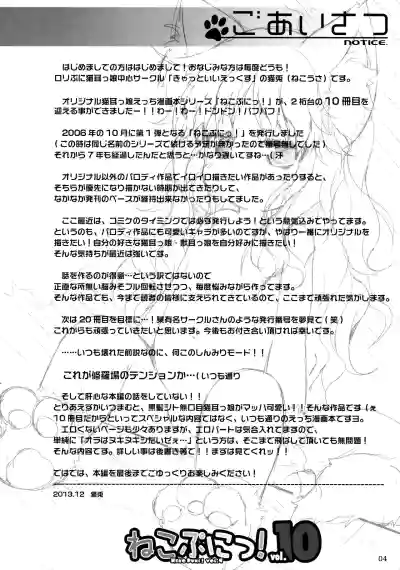 ごあいさつ
NOTICE.
はじめましての方ははじめまして!おなじみな方は毎度どうも!
ロリぷに猫耳っ娘中心サークル「きゃっといいえっくす」の猫兎(ねこうさ)です。
オリジナル猫耳っ娘えっち漫画本シリーズ「ねこぷにっ!」が、2桁台の10冊目を
迎える事ができましたー!!わー!わー!ドンドン!パフパフ!
2006年の10月に第1弾となる「ねこぷにっ!」を発行しました
(この時は同じ名前のシリーズで続ける予定が無かったので番号無しでした)
それから7年も経過したんだと思うと…かなり遅いですね~(汗
オリジナル以外のパロディ作品でイロイロ描きたい作品があったりすると、
そちらが優先になり描かない時期が出てきたりして、
なかなか発刊のペースが維持出来なかったりもしてました。
ここ最近は、コミケのタイミングでは必ず発行しよう!という意気込みでやってます。
というのも、パロディ作品にも可愛いキャラが多いのですが、やはり一番にオリジナルを
描きたい!自分の好きな猫耳っ娘・獣耳っ娘を自分好みに描きたい!
そんな気持ちが最近は強いです。
話を作るのが得意…という訳ではないので
正直な所無い脳みそフル回転させつつ、毎度悩みながら作ってます。
そんな作品でも、今まで読者の皆様に支えられてきているので、ここまで頑張れた気がします。
次は20冊目を目標に…!某有名サークルさんのような発行番号を夢見て(笑)
これからも頑張っていきたいと思います。今後もお付き合い頂ければ幸いです。
……いつも壊れた前説なのに、何このしんみりモード!!
これが修羅場のテンションか…(いつも通り
そして肝心な本編の話をしていない!!
とりあえずかいつまむと、黒髪ジト無口猫耳っ娘がマッハ可愛い!!そんな作品です(ぇ
10冊目だからといってスペシャルな内容ではなく、いつも通りのえっち本ですヨ。
エロくないページも少々ありますが、エロパートは気合入れてますので、
単純に「オラはヌキヌキしたいだぇ…」という方は、そこまで飛ばして頂いても無問題!
そんな内容です。詳しい事は後書き等で!!まずは見てくれぃッ!
ではでは、本編を最後までごゆっくりお楽しみください!
2013.12 猫兎
ねこぷにっ! vol.10
04